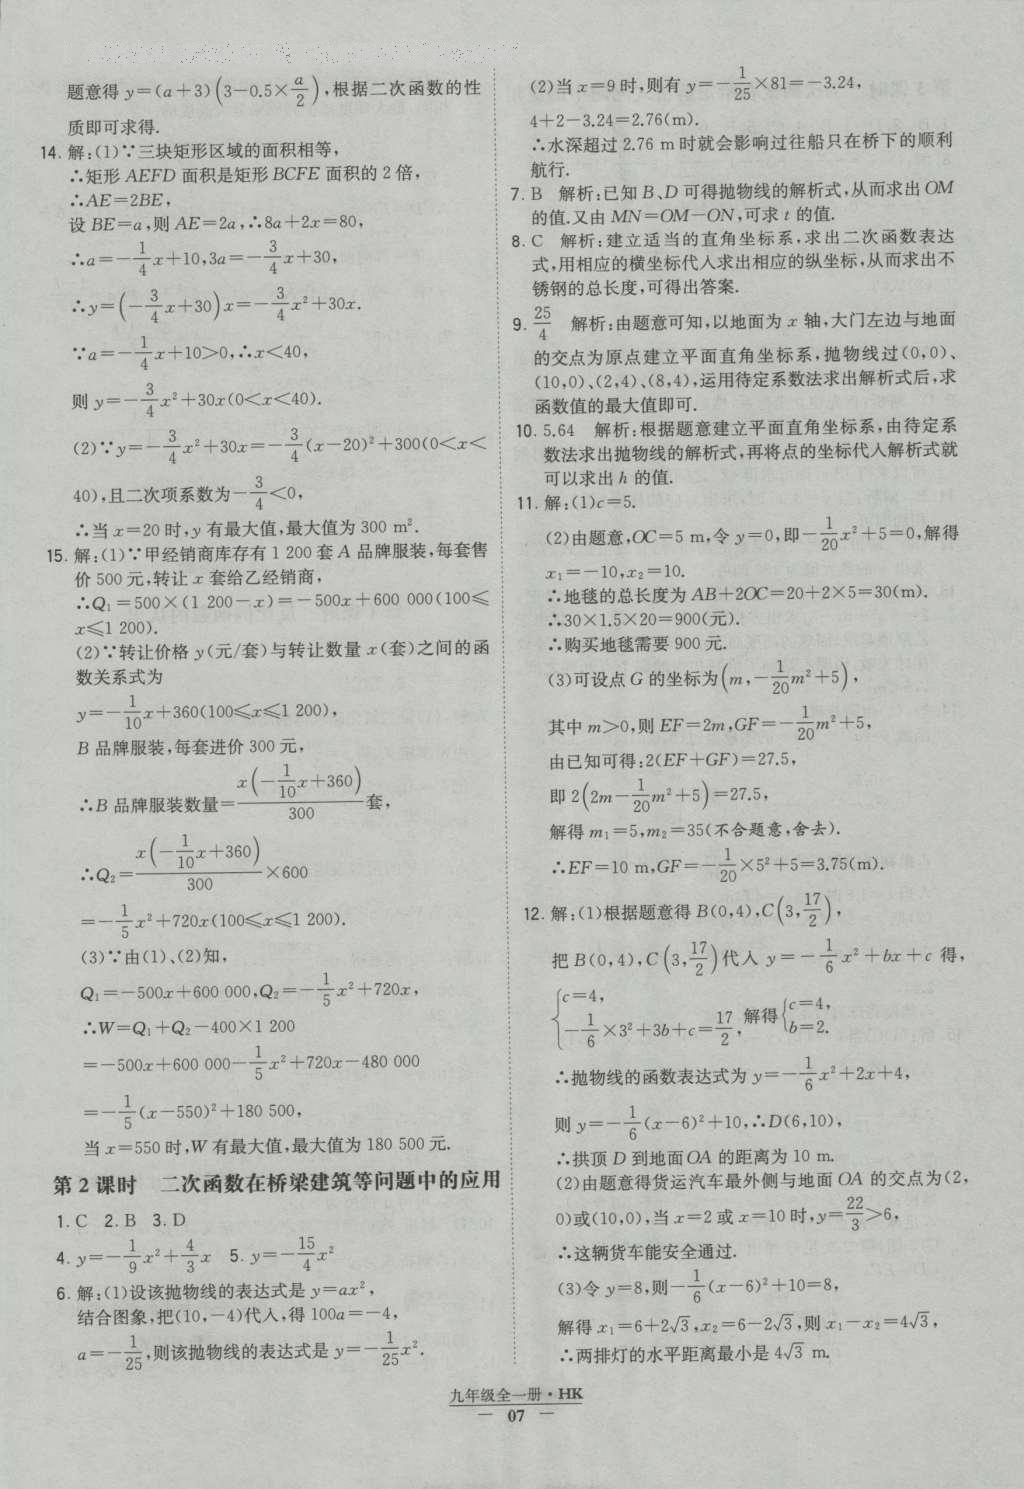 题意得 y=(a+3)(3-0.5×a/2),根据二次函数的性
质即可求得.
14. 解:(1)∵三块矩形区域的面积相等,
∴矩形 AEFD 面积是矩形 BCFE 面积的 2 倍,
∴AE=2BE,
设 BE=a,则 AE=2a,∴8a+2x=80,
∴a=-1/4x+10,3a=-3/4x+30,
∴y=(-3/4x+30)x=-3/4x²+30x.
∵a=-1/4x+10>0,∴x<40,
则 y=-3/4x²+30x(0<x<40).
(2)∵y=-3/4x²+30x=-3/4(x-20)²+300(0<x<
40),且二次项系数为-3/4<0,
∴当 x=20 时,y 有最大值,最大值为 300 m².
15. 解:(1)∵甲经销商库存有 1 200 套 A 品牌服装,每套售
价 500 元,转让 x 套给乙经销商,
∴Q₁=500×(1 200-x)=-500x+600 000(100≤
x≤1 200).
(2)∵转让价格 y(元/套)与转让数量 x(套)之间的函
数关系式为
y=-1/10x+360(100≤x≤1 200),
B 品牌服装,每套进价 300 元,
∴B 品牌服装数量=x(-1/10x+360)/300套,
∴Q₂=x(-1/10x+360)/300×600
=-1/5x²+720x(100≤x≤1 200).
(3)∵由(1)、(2)知,
Q₁=-500x+600 000,Q₂=-1/5x²+720x,
∴W=Q₁+Q₂-400×1 200
=-500x+600 000-1/5x²+720x-480 000
=-1/5(x-550)²+180 500,
当 x=550 时,W 有最大值,最大值为 180 500 元.
第 2 课时 二次函数在桥梁建筑等问题中的应用
1. C 2. B 3. D
4. y=-1/9x²+4/3x 5. y=-15/4x²
6. 解:(1)设该抛物线的表达式是 y=ax²,
结合图象,把(10,-4)代入,得 100a=-4,
a=-1/25,则该抛物线的表达式是 y=-1/25x².
(2)当 x=9 时,则有 y=-1/25×81=-3.24,
4+2-3.24=2.76(m).
∴水深超过 2.76 m 时就会影响过往船只在桥下的顺利
航行.
7. B 解析:已知 B、D 可得抛物线的解析式,从而求出 OM
的值.又由 MN=OM-ON,可求 t 的值.
8. C 解析:建立适当的直角坐标系,求出二次函数表达
式,用相应的横坐标代入求出相应的纵坐标,从而求出不
锈钢的总长度,可得出答案.
9. 25/4 解析:由题意可知,以地面为 x 轴,大门左边与地面
的交点为原点建立平面直角坐标系,抛物线过(0,0)、
(10,0)、(2,4)、(8,4),运用待定系数法求出解析式后,求
函数值的最大值即可.
10. 5.64 解析:根据题意建立平面直角坐标系,由待定系
数法求出抛物线的解析式,再将点的坐标代入解析式就
可以求出 h 的值.
11. 解:(1)c=5.
(2)由题意,OC=5 m,令 y=0,即-1/20x²+5=0,解得
x₁=-10,x₂=10.
∴地毯的总长度为 AB+2OC=20+2×5=30(m).
∴30×1.5×20=900(元).
∴购买地毯需要 900 元.
(3)可设点 G 的坐标为(m,-1/20m²+5),
其中 m>0,则 EF=2m,GF=-1/20m²+5,
由已知可得:2(EF+GF)=27.5,
即 2(2m-1/20m²+5)=27.5,
解得 m₁=5,m₂=35(不合题意,舍去).
∴EF=10 m,GF=-1/20×5²+5=3.75(m).
12. 解:(1)根据题意得 B(0,4),C(3,17/2),
把 B(0,4),C(3,17/2)代入 y=-1/6x²+bx+c 得,
{c=4, -1/6×3²+3b+c=17/2, 解得{c=4, b=2.
∴抛物线的函数表达式为 y=-1/6x²+2x+4,
则 y=-1/6(x-6)²+10,∴D(6,10),
∴拱顶 D 到地面OA 的距离为 10 m.
(2)由题意得货运汽车最外侧与地面 OA 的交点为(2,
0)或(10,0),当 x=2或 x=10 时,y=22/3>6,
∴这辆货车能安全通过.
(3)令 y=8,则-1/6(x-6)²+10=8,
解得 x₁=6+2√3,x₂=6-2√3,则 x₁-x₂=4√3,
∴两排灯的水平距离最小是 4√3 m.
九年级全一册·HK
— 07 —